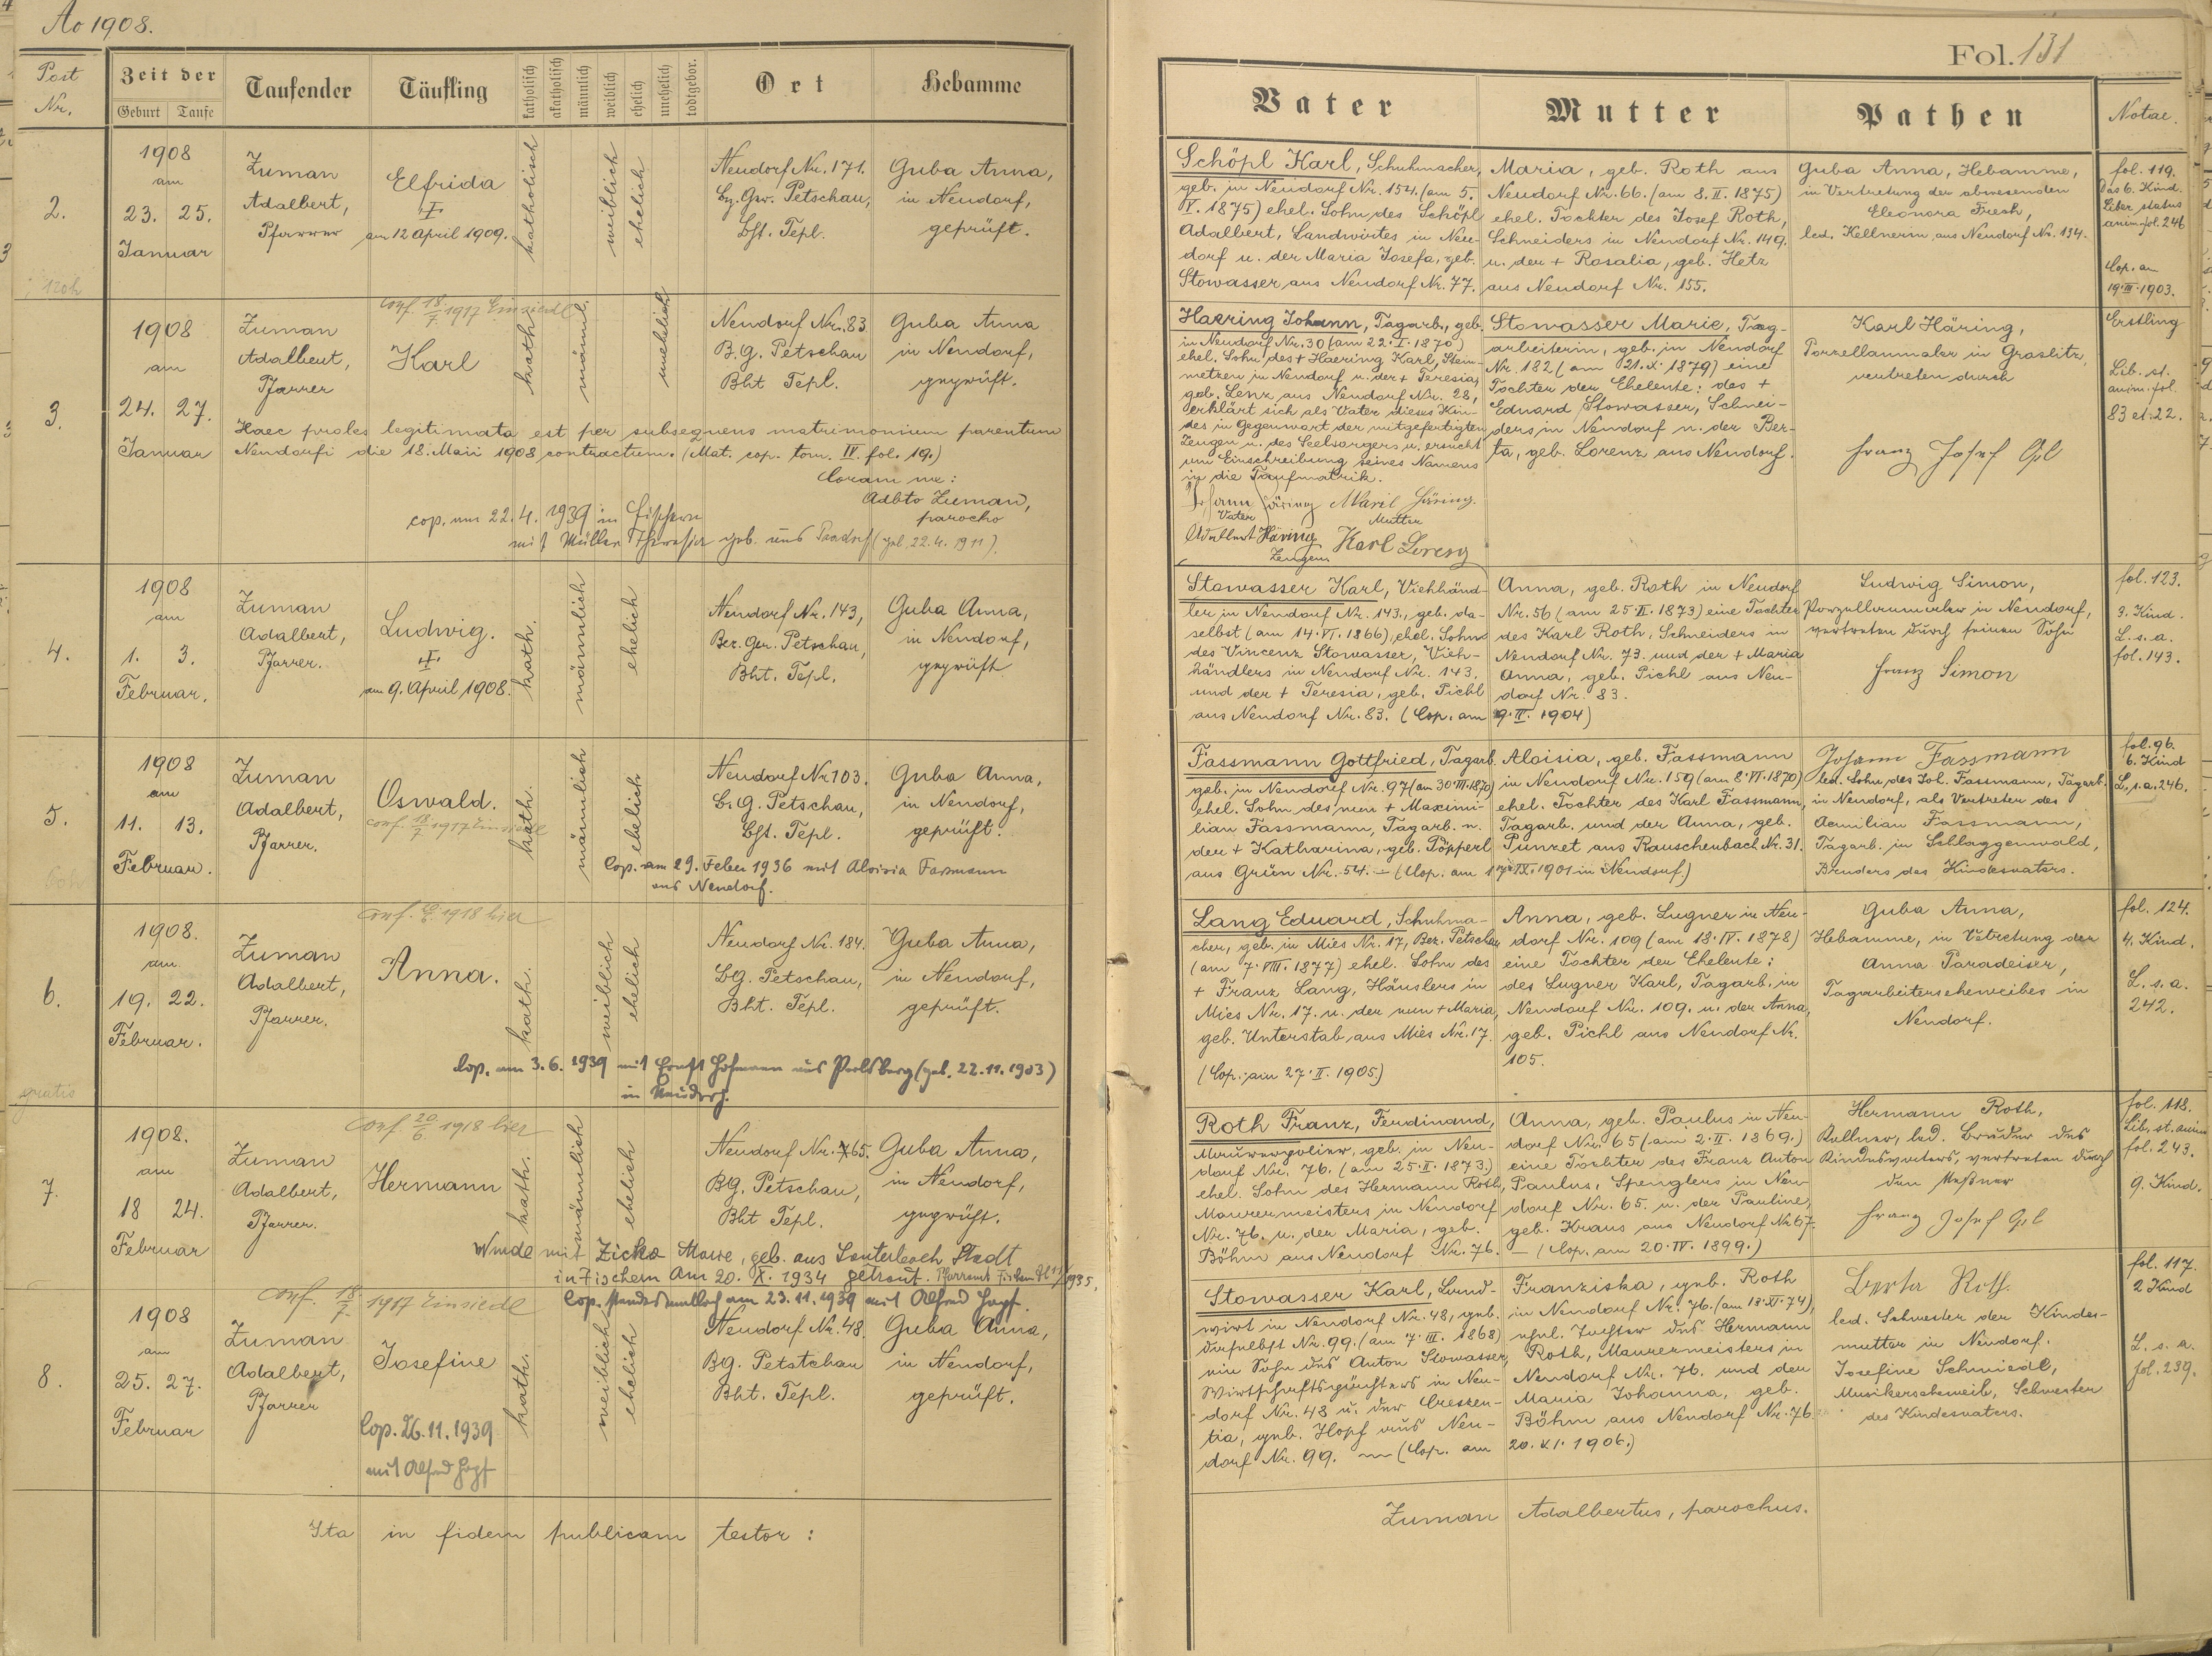 Ao 1908.
Post Nr.
Zeit der
Geburt Taufe
Taufender
Täufling
katholisch
akatholisch
männlich
weiblich
ehelich
unehelich
todtgebor.
Ort
Hebamme
2.
1908
am
23. 25.
Januar
Zuman
Adalbert,
Pfarrer
Elfrida
am 12 April 1909.
katholisch
weiblich
ehelich
Neudorf Nr. 171.
Bz. Ger. Petschau,
Bh. Tepl.
Guba Anna,
in Neudorf,
geprüft.
3.
1908
am
24. 27.
Januar
Zuman
Adalbert,
Pfarrer
conf. 18/7 1917 Einsiedl
Karl
kath.
männl.
unehelich
Neudorf Nr. 83
B.G. Petschau
Bht Tepl.
Guba Anna
in Neudorf,
geprüft.
Haec proles legitimata est per subsequens matrimonium parentum
Neudorfi die 18. Maii 1908 contractum. (Mat. cop. tom. IV. fol. 19.)
Coram me:
Adbto Zuman,
parocho
cop. am 22.4. 1939 in Fischern
mit Müller Theresia geb. aus (geb. 22.4. 1911).
4.
1908
am
1. 3.
Februar.
Zuman
Adalbert,
Pfarrer.
Ludwig.
am 9. April 1908.
kath.
männlich
ehelich
Neudorf Nr. 143,
Bez. Ger. Petschau,
Bht. Tepl.
Guba Anna,
in Neudorf,
geprüft
5.
1908
am
11. 13.
Februar.
Zuman
Adalbert,
Pfarrer.
Oswald.
conf. 18/7 1917 Einsiedl
kath.
männlich
ehelich
Neudorf Nr 103.
B.G. Petschau,
Bh. Tepl.
Guba Anna,
in Neudorf,
geprüft.
Cop. am 29. Feber 1936 mit Aloisia Fassmann
aus Neudorf.
6.
1908.
am
19. 22.
Februar.
gratis
Zuman
Adalbert,
Pfarrer.
1918 hier
Anna.
kath.
weiblich
ehelich
Neudorf Nr. 184.
BG. Petschau,
Bht. Tepl.
Guba Anna,
in Neudorf,
geprüft.
Cop. am 3.6. 1939 mit Ernst Hofmann aus Perlsberg (geb. 22.11.1903)
in Neudorf.
7.
1908.
am
18 24.
Februar
Zuman
Adalbert,
Pfarrer.
conf. 20/6 1918 hier
Hermann
kath.
männlich
ehelich
Neudorf Nr. 65.
BG. Petschau,
Bht Tepl.
Guba Anna,
in Neudorf,
geprüft.
Wurde mit Zicka Marie, geb. aus Lauterbach Stadt
in Fischern am 20. X. 1934 getraut. Pfarramt Fischern 1935.
8.
1908
am
25. 27.
Februar
Zuman
Adalbert,
Pfarrer
conf. 18/7 1917 Einsiedl
Josefine
Cop. 26.11.1939
mit Alfred Hopf
kath.
weiblich
ehelich
Cop. standesamtlich am 23.11.1939 mit Alfred Hopf.
Neudorf Nr. 48.
BG. Petstchau
Bht. Tepl.
Guba Anna,
in Neudorf,
geprüft.
Ita in fidem publicam testor:
Fol. 131
Vater
Mutter
Pathen
Notae.
Schöpl Karl, Schuhmacher,
geb. in Neudorf Nr. 154. (am 5.
IV. 1875) ehel. Sohn des Schöpl
Adalbert, Landwirtes in Neu-
dorf u. der Maria Josefa, geb.
Stowasser aus Neudorf Nr. 77.
Maria, geb. Roth aus
Neudorf Nr. 66. (am 8. II. 1875)
ehel. Tochter des Josef Roth,
Schneiders in Neudorf Nr. 149.
u. der + Rosalia, geb. Hetz
aus Neudorf Nr. 155.
Guba Anna, Hebamme,
in Vertretung der abwesenden
Eleonora Fresh,
led. Kellnerin aus Neudorf Nr. 134.
fol. 119.
Das 6. Kind.
Liber status
anim. fol. 246
Cop. am
19. III. 1903.
Haering Johann, Tagarb., geb.
in Neudorf Nr. 30 (am 22. I. 1870)
ehel. Sohn des + Haering Karl, Stein-
metzen in Neudorf u. der + Teresia,
geb. Lenz aus Neudorf Nr. 28,
erklärt sich als Vater dieses Kin-
des in Gegenwart der mitgefertigten
Zeugen u. des Seelsorgers u. ersucht
um Einschreibung seines Namens
in die Taufmatrik.
Johann Häring Marie Häring
Vater Mutter
Adalbert Häring Karl Lorenz
Zeugen
Stowasser Marie, Tag-
arbeiterin, geb. in Neudorf
Nr. 182 (am 21. X. 1879) eine
Tochter der Eheleute: des +
Eduard Stowasser, Schnei-
ders in Neudorf u. der Ber-
ta, geb. Lorenz aus Neudorf.
Karl Häring,
Porzellanmaler in Graslitz,
vertreten durch
Franz Josef Gl
Erstling
Lib. st.
anim. fol.
83 et 22.
Stowasser Karl, Viehhänd-
ler in Neudorf Nr. 143., geb. da-
selbst (am 14. VI. 1866), ehel. Sohn
des Vincenz Stowasser, Vieh-
händlers in Neudorf Nr. 143.
und der + Teresia, geb. Pichl
aus Neudorf Nr. 83. (Cop. am 9. II. 1904)
Anna, geb. Roth in Neudorf
Nr. 56 (am 25. II. 1873) eine Tochter
des Karl Roth, Schneiders in
Neudorf Nr. 73. und der + Maria
Anna, geb. Pichl aus Neu-
dorf Nr. 83.
Ludwig Simon,
Porzellanmaler in Neudorf,
vertreten durch seinen Sohn
Franz Simon
fol. 123.
3. Kind.
L. s. a.
fol. 143.
Fassmann Gottfried, Tagarb.
geb. in Neudorf Nr. 97 (am 30. III. 1870)
ehel. Sohn des nun + Maximi-
lian Fassmann, Tagarb. u.
der + Katharina, geb. Pöpperl
aus Grün Nr. 54. — (Cop. am IX. 1901 in Neudorf.)
Aloisia, geb. Fassmann
in Neudorf Nr. 159 (am 8. VI. 1870)
ehel. Tochter des Karl Fassmann,
Tagarb. und der Anna, geb.
Punzet aus Rauschenbach Nr. 31.
Johann Fassmann
led. Sohn des Joh. Fassmann, Tagarb.
in Neudorf, als Vertreter des
Aemilian Fassmann,
Tagarb. in Schlaggenwald,
Bruders des Kindesvaters.
fol. 96.
6. Kind
L. s. a. 246.
Lang Eduard, Schuhma-
cher, geb. in Mies Nr. 17, Bez. Petschau
(am 7. VIII. 1877) ehel. Sohn des
+ Franz Lang, Häuslers in
Mies Nr. 17. u. der nun + Maria,
geb. Unterstab aus Mies Nr. 17.
(Cop. am 27. II. 1905.)
Anna, geb. Lugner in Neu-
dorf Nr. 109 (am 18. IV. 1878)
eine Tochter der Eheleute:
des Lugner Karl, Tagarb. in
Neudorf Nr. 109. u. der Anna,
geb. Pichl aus Neudorf Nr.
105.
Guba Anna,
Hebamme, in Vetretung der
Anna Paradeiser,
Tagarbeiterseheweibes in
Neudorf.
fol. 124.
4. Kind.
L. s. a.
242.
Roth Franz, Ferdinand,
Maurerpolier, geb. in Neu-
dorf Nr. 76. (am 25. II. 1873.)
ehel. Sohn des Hermann Roth,
Maurermeisters in Neudorf
Nr. 76. u. der Maria, geb.
Böhm aus Neudorf Nr. 76. — (Cop. am 20. IV. 1899.)
Anna, geb. Paulus in Neu-
dorf Nr. 65 (am 2. II. 1869.)
eine Tochter des Franz Anton
Paulus, Spenglers in Neu-
dorf Nr. 65. u. der Pauline,
geb. Kraus aus Neudorf Nr 67.
Hermann Roth,
Kellner, led. Bruder des
Kindesvaters, vertreten durch
den Meßner
Franz Josef Gl
fol. 118.
Lib. st. anim
fol. 243.
9. Kind.
Stowasser Karl, Land-
wirt in Neudorf Nr. 48, geb.
daselbst Nr. 99. (am 7. III. 1868)
ein Sohn des Anton Stowasser,
Wirtschaftspächters in Neu-
dorf Nr. 48 u. der Creszen-
tia, geb. Hopf aus Neu-
dorf Nr. 99. — (Cop. am 20. XI. 1906.)
Franziska, geb. Roth
in Neudorf Nr. 76. (am 18. XI. 74),
ehel. Tochter des Hermann
Roth, Maurermeisters in
Neudorf Nr. 76. und der
Maria Johanna, geb.
Böhm aus Neudorf Nr. 76.
Berta Roth.
led. Schwester der Kindes-
mutter in Neudorf.
Josefine Schmiedl,
Musikerseheweib, Schwester
des Kindesvaters.
fol. 117.
2 Kind
L. s. a.
fol. 239.
Zuman Adalbertus, parochus.